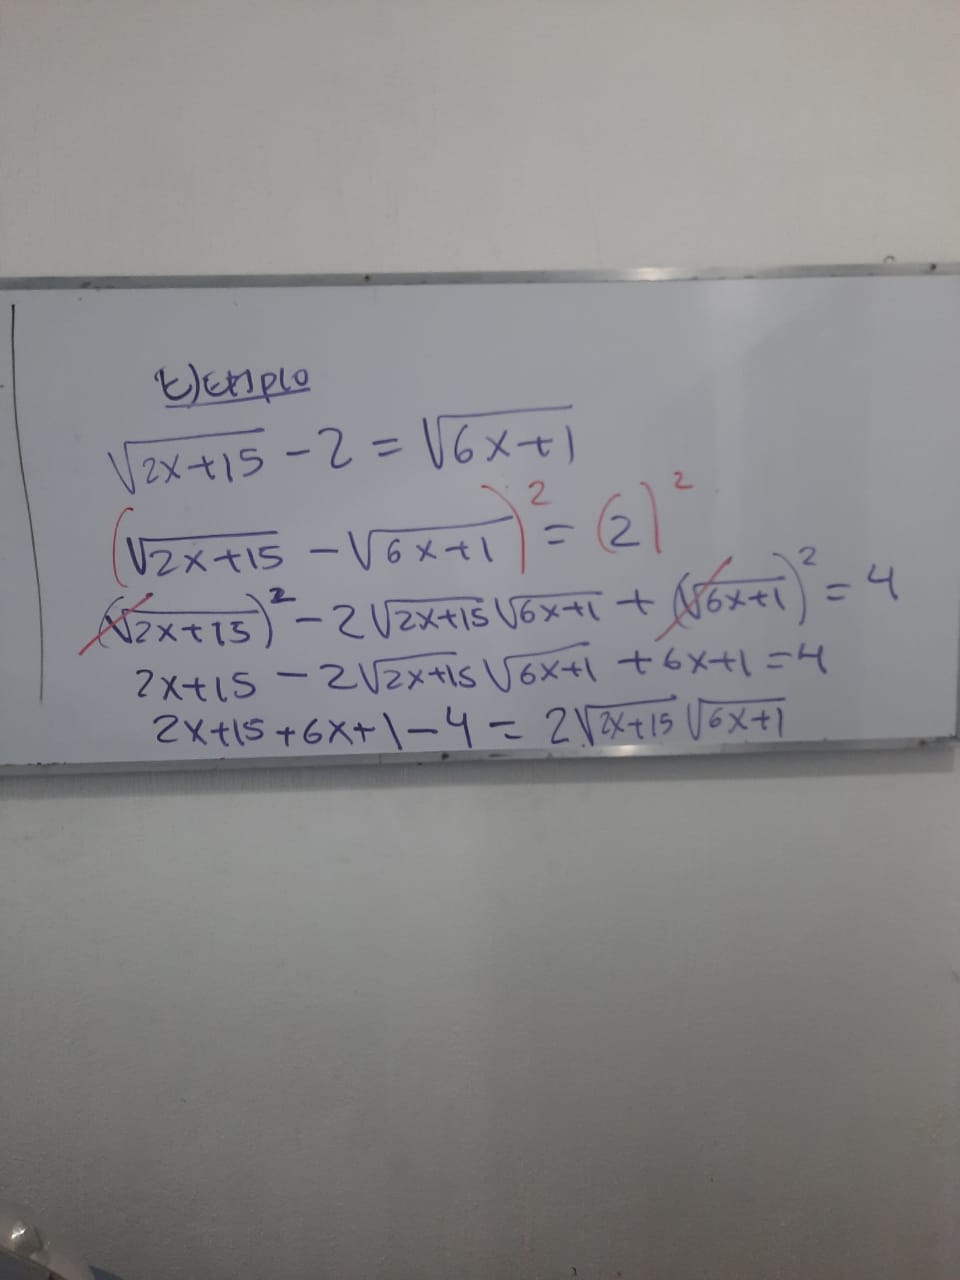 Ejemplo
√2x+15 - 2 = √6x+1
(√2x+15 - √6x+1)² = (2)²
(√2x+15)² - 2√2x+15 √6x+1 + (√6x+1)² = 4
2x+15 - 2√2x+15 √6x+1 + 6x+1 = 4
2x+15+6x+1-4 = 2√2x+15 √6x+1